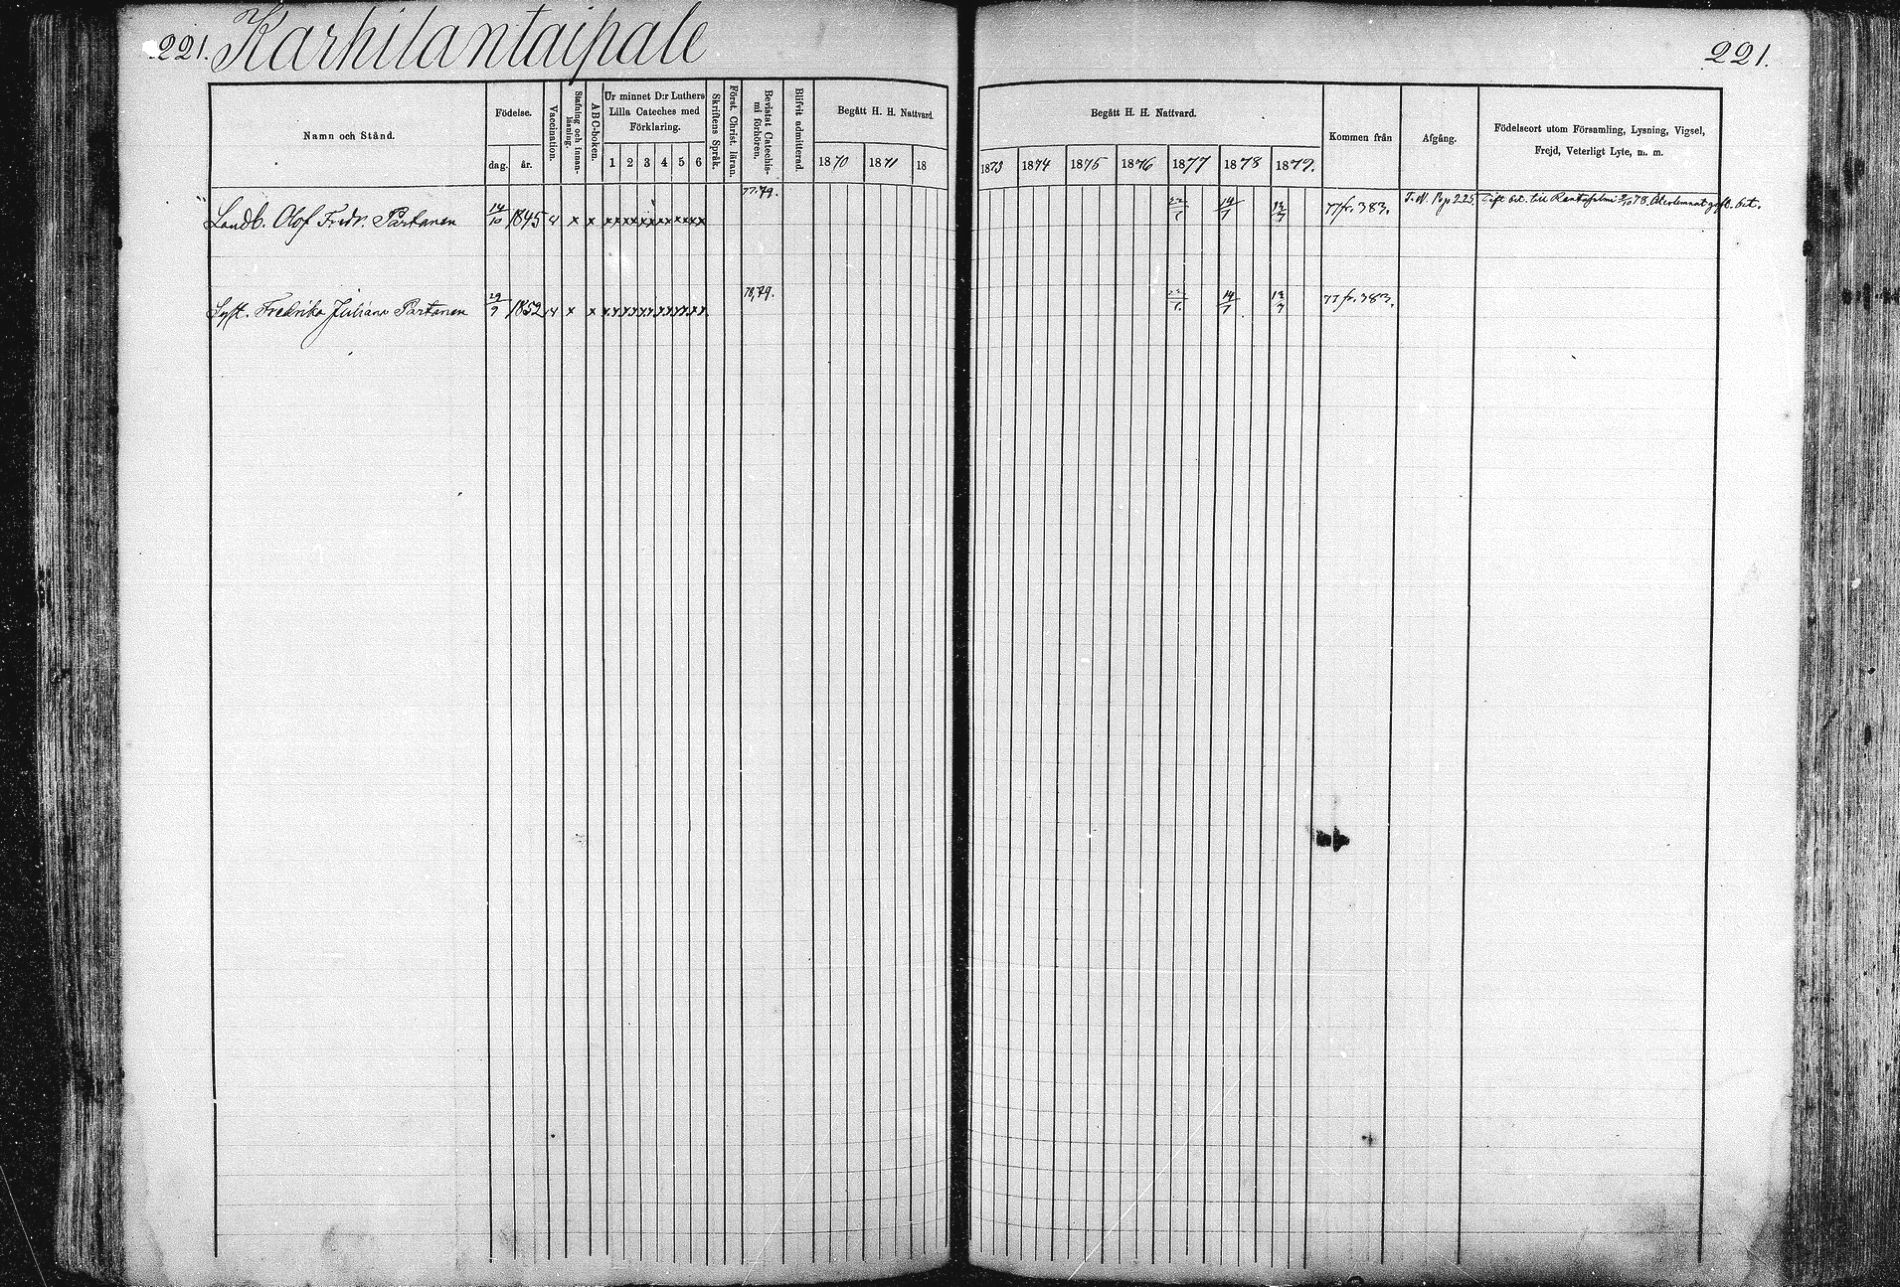 221. Karhilantaipale 221.
Namn och Stånd.
Födelse.
dag. år.
Vaccination.
Stafning och innan-läsning.
ABC-boken.
Ur minnet D:r Luthers
Lilla Cateches med
Förklaring.
1 2 3 4 5 6
Skriftens Språk.
Först. Christ. läran.
Bevistat Catechis-mi förhören.
Blifvit admitterad.
Begått H. H. Nattvard.
1870 1871 18
Begått H. H. Nattvard.
1873 1874 1875 1876 1877 1878 1879.
Kommen från
Afgång.
Födelseort utom Församling, Lysning, Vigsel,
Frejd, Veterligt Lyte, m. m.
Landb. Olof Fredr. Partanen 14/10 1845 v x x xx xx xx xx xx xx 77.79. 22/6 14/7 13/7 77 fr. 383. 225. bet. till 78. bet.
Syst. Fredrika Juliana Partanen 29/9 1852 v x x xx xx xx xx xx xx 78,79. 22/6. 14/7 13/7 77 fr. 383.